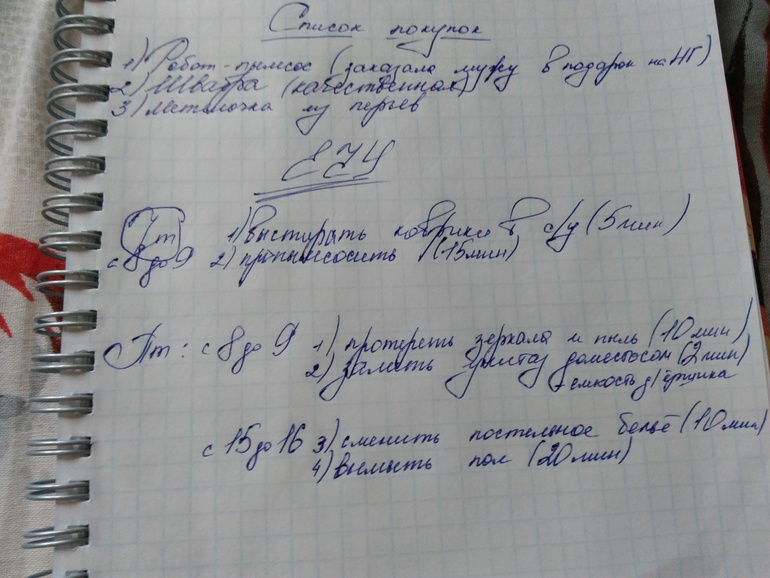 Список покупок
1) Робот-пылесос (заказала мужу в подарок на НГ)
2) Швабра (качественная)
3) Метёлочка из перьев
ЕГУ
1) выстирать коврики в с/у (5 мин)
с 8 до 9 2) пропылесосить (15 мин)
Пт: с 8 до 9 1) протереть зеркала и пыль (10 мин)
2) залить унитаз доместосом (2 мин)
+ емкость д/ ёршика
с 15 до 16 3) сменить постельное бельё (10 мин)
4) вымыть пол (20 мин)